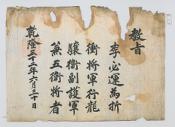 教旨
李必運為折
衝將軍行龍
驤衛副護軍
兼五衛將者
乾隆三十一年六月三十日